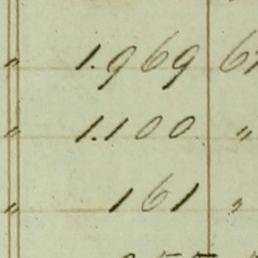 " 1.969 6
" 1.100 "
" 161 "